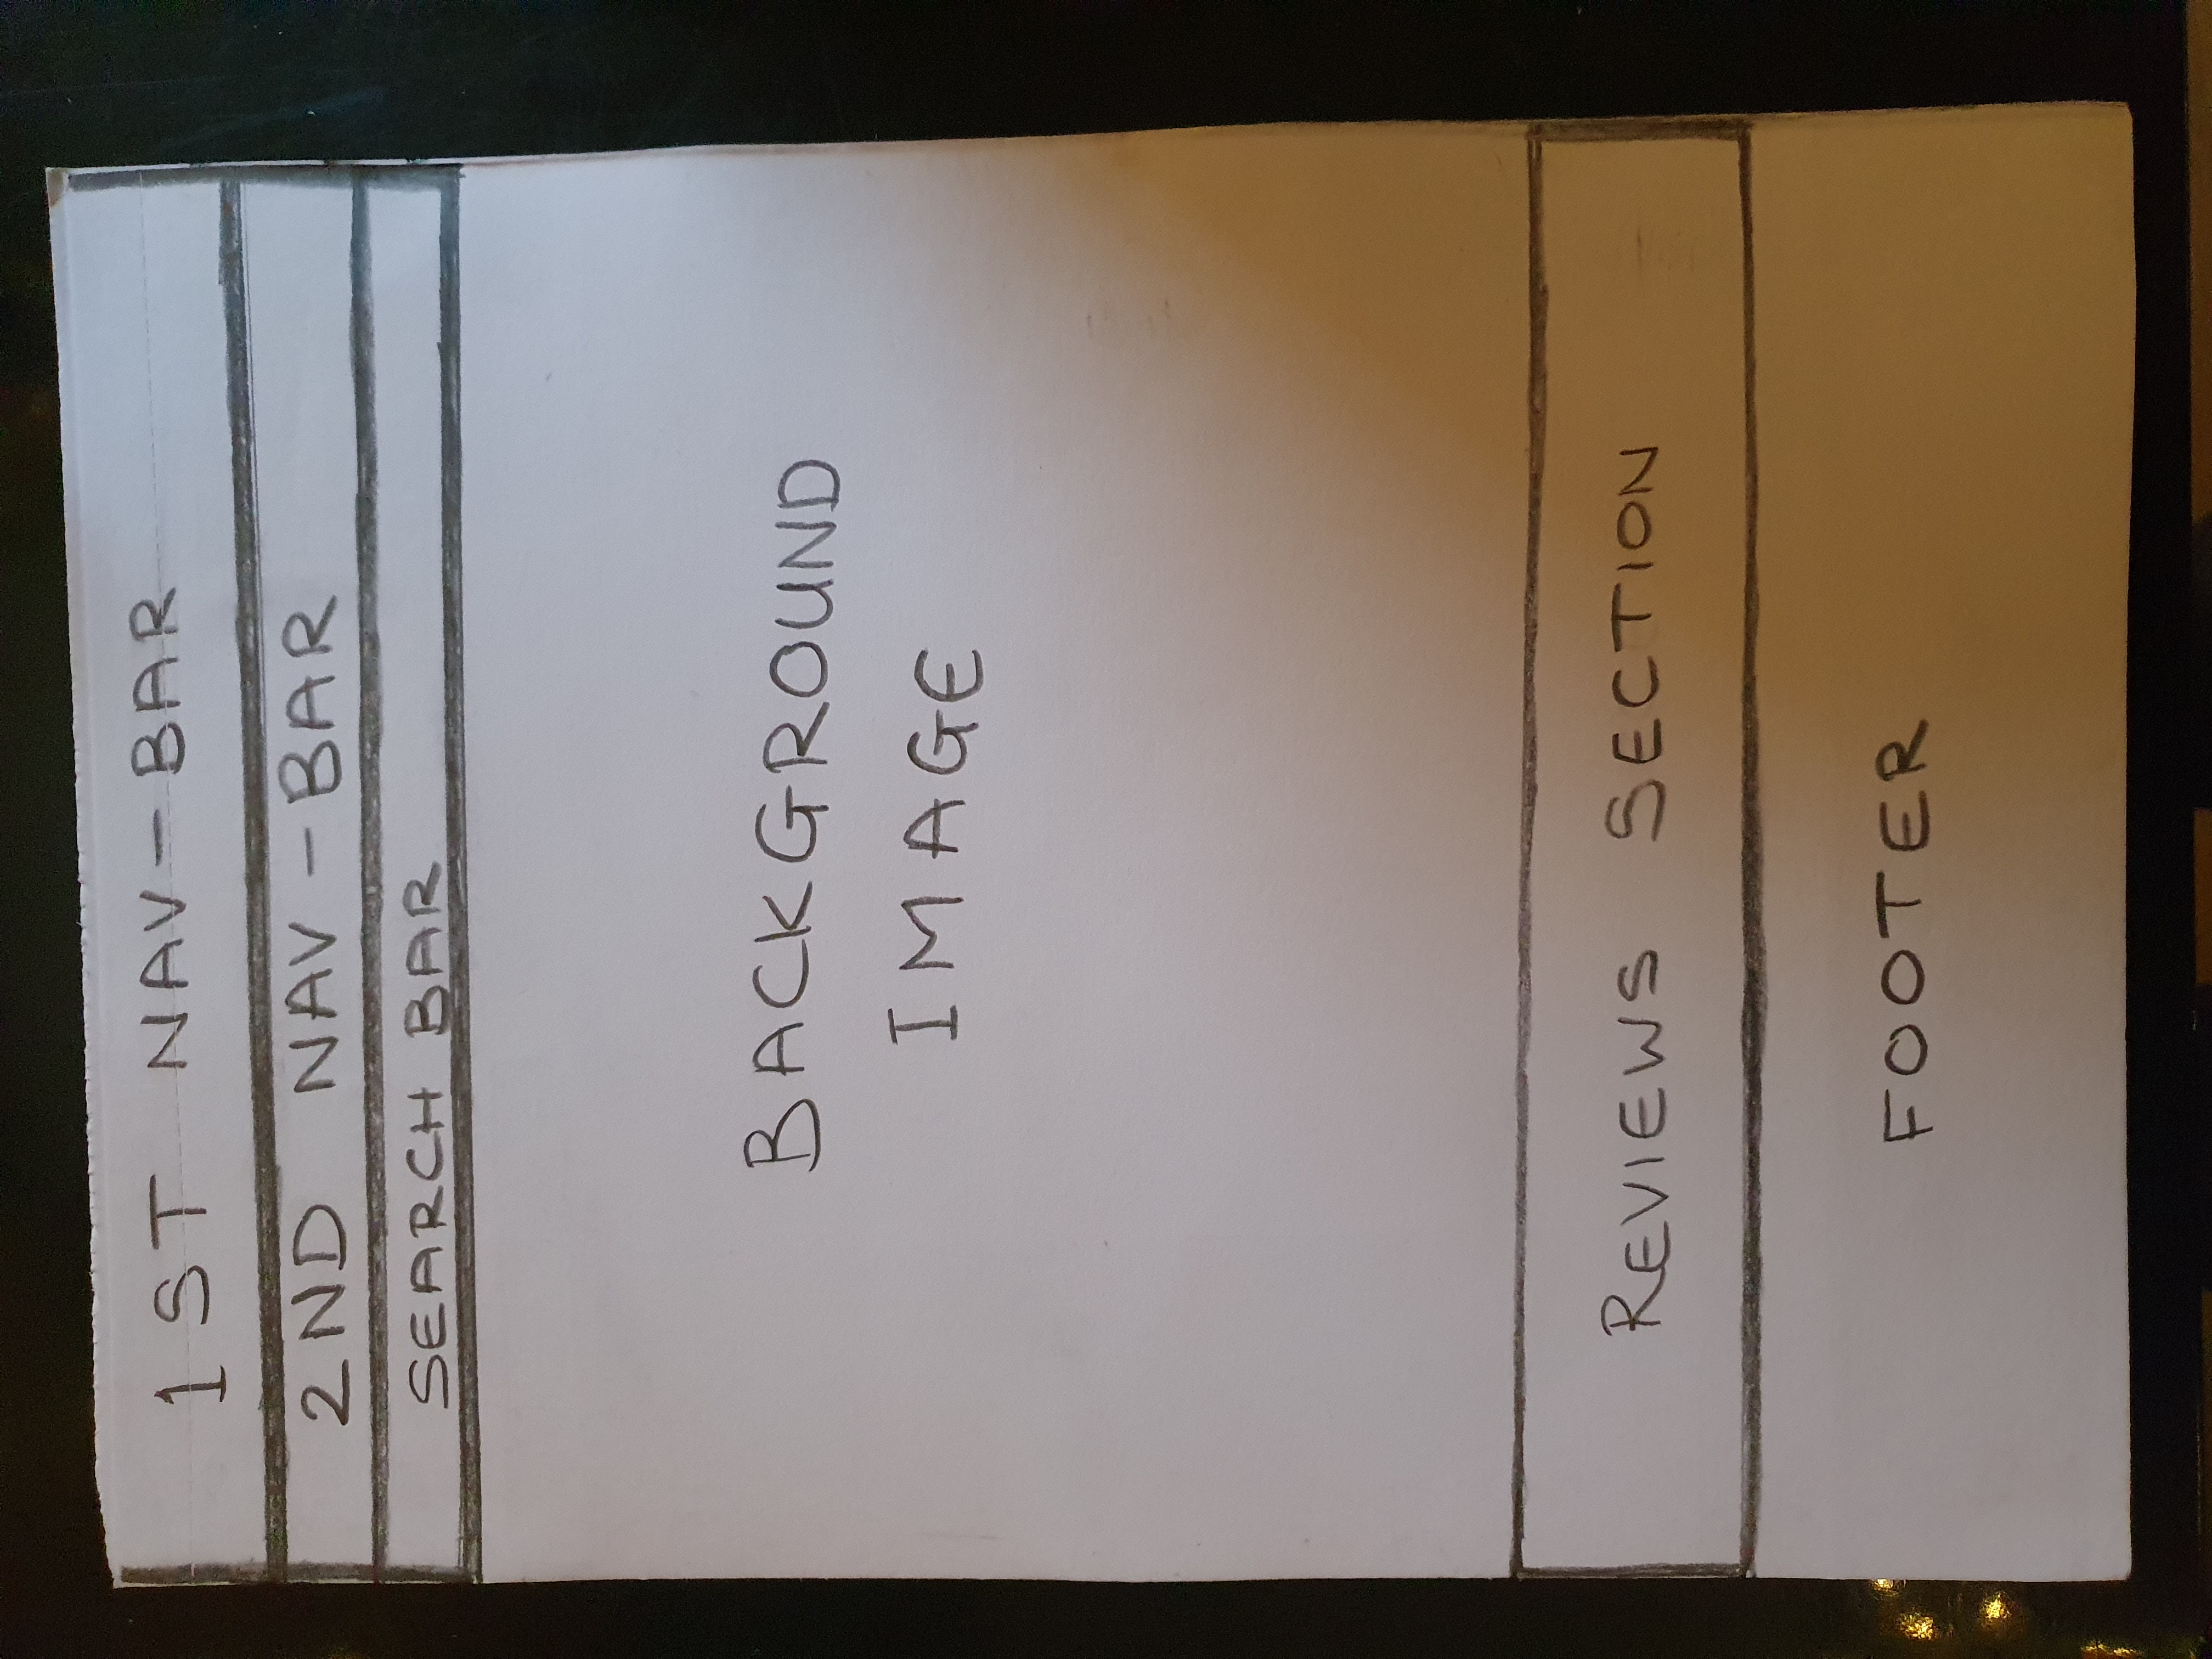 1ST NAV-BAR
2ND NAV-BAR
SEARCH BAR
BACKGROUND
IMAGE
REVIEWS SECTION
FOOTER